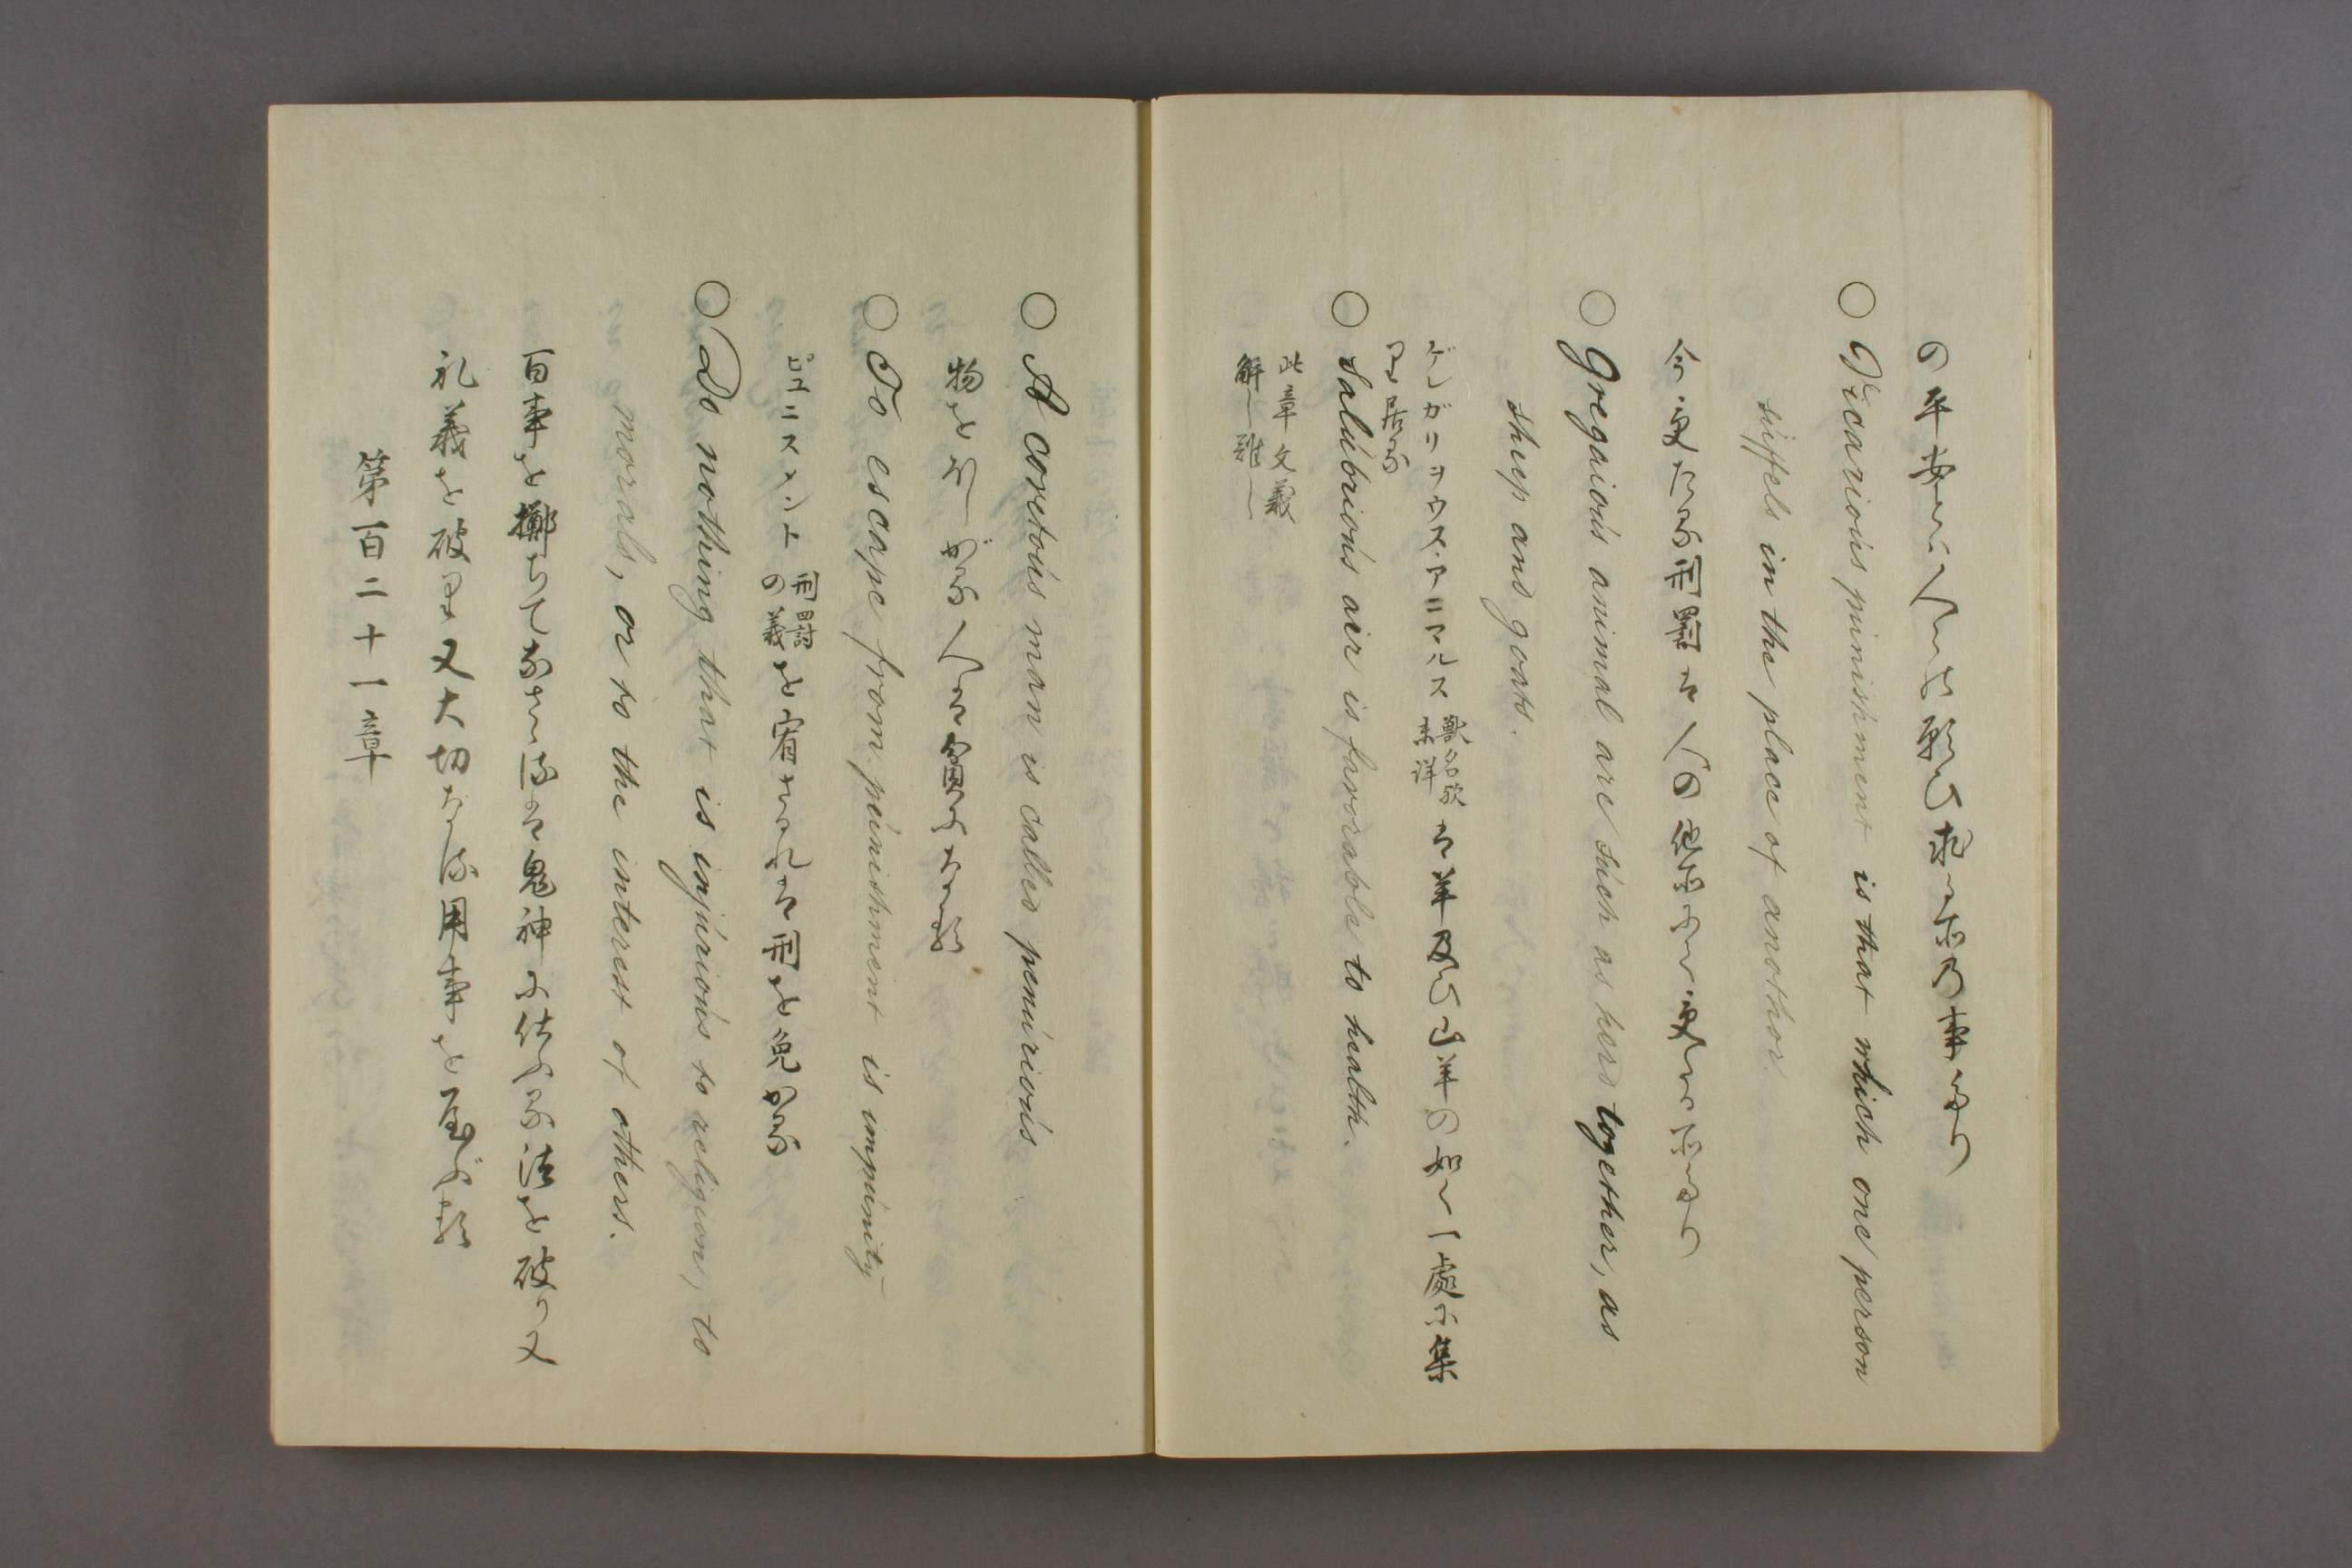 の平安ハ人の願ひ求る所乃事なり
○ Vicarious punishment is that which one person
siffels in the place of anothor
今更たる刑罰は人の他所にて更る所なり
○ Gregaious animal are such as herd together, as
sheep and goats.
ゲレガリヲウス・アニマルス 獣名欤未詳 は羊及び山羊の如く一處に集
り居る
○ Salubrious aer is favorable to health.
此章文義
解し難し
○ A coretous man is called penurious
物をほしがる人は貧になる
○ To escape from punishment is impunity
ピユニスメント 刑罰の義 を宥さるれは刑を免かる
○ Do nothing that is injurious to religion, to
morals, or to the interest of others.
百事を擲ちてなさゝるは鬼神に仕ふる法を破り又
礼義を破り又大切なる用事を
第百二十一章